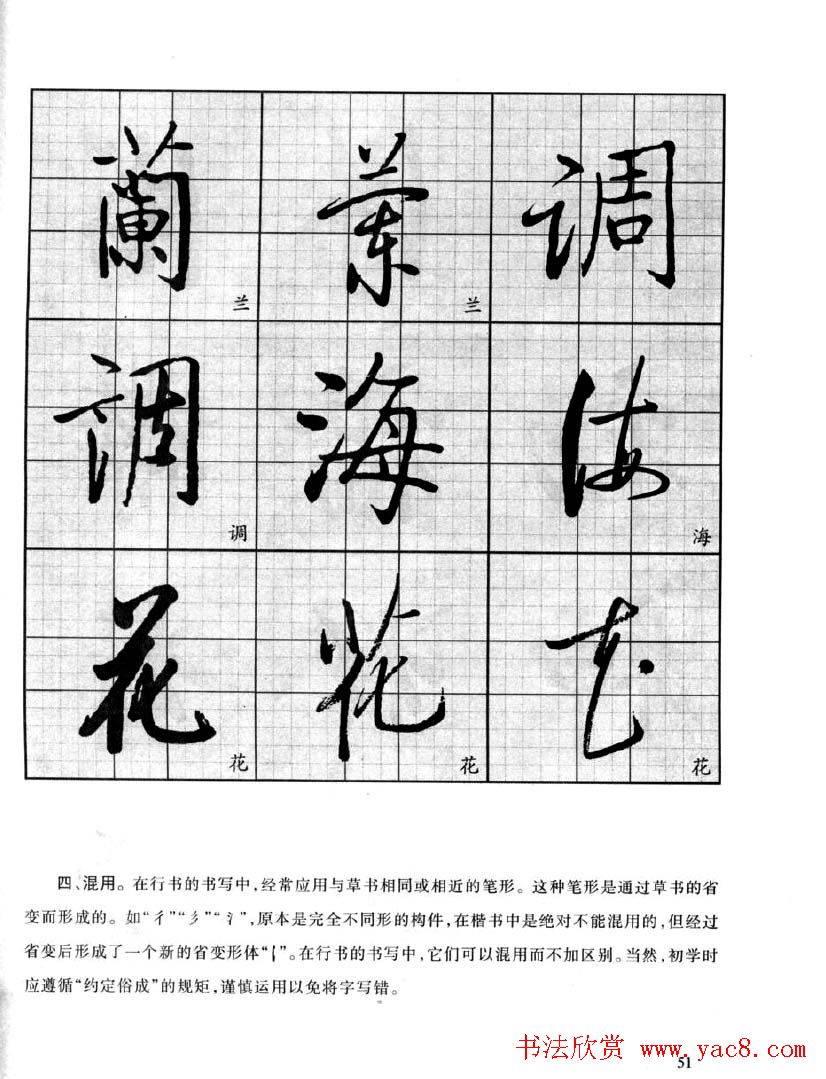 蘭 蘭 调
兰 兰
调 海 海
调 海
花 花 花
花 花 花
四、混用。在行书的书写中,经常应用与草书相同或相近的笔形。这种笔形是通过草书的省
变而形成的。如“彳”“彡”“氵”,原本是完全不同形的构件,在楷书中是绝对不能混用的,但经过
省变后形成了一个新的省变形体“”。在行书的书写中,它们可以混用而不加区别。当然,初学时
应遵循“约定俗成”的规矩,谨慎运用以免将字写错。
书法欣赏 www.yac8.com
51